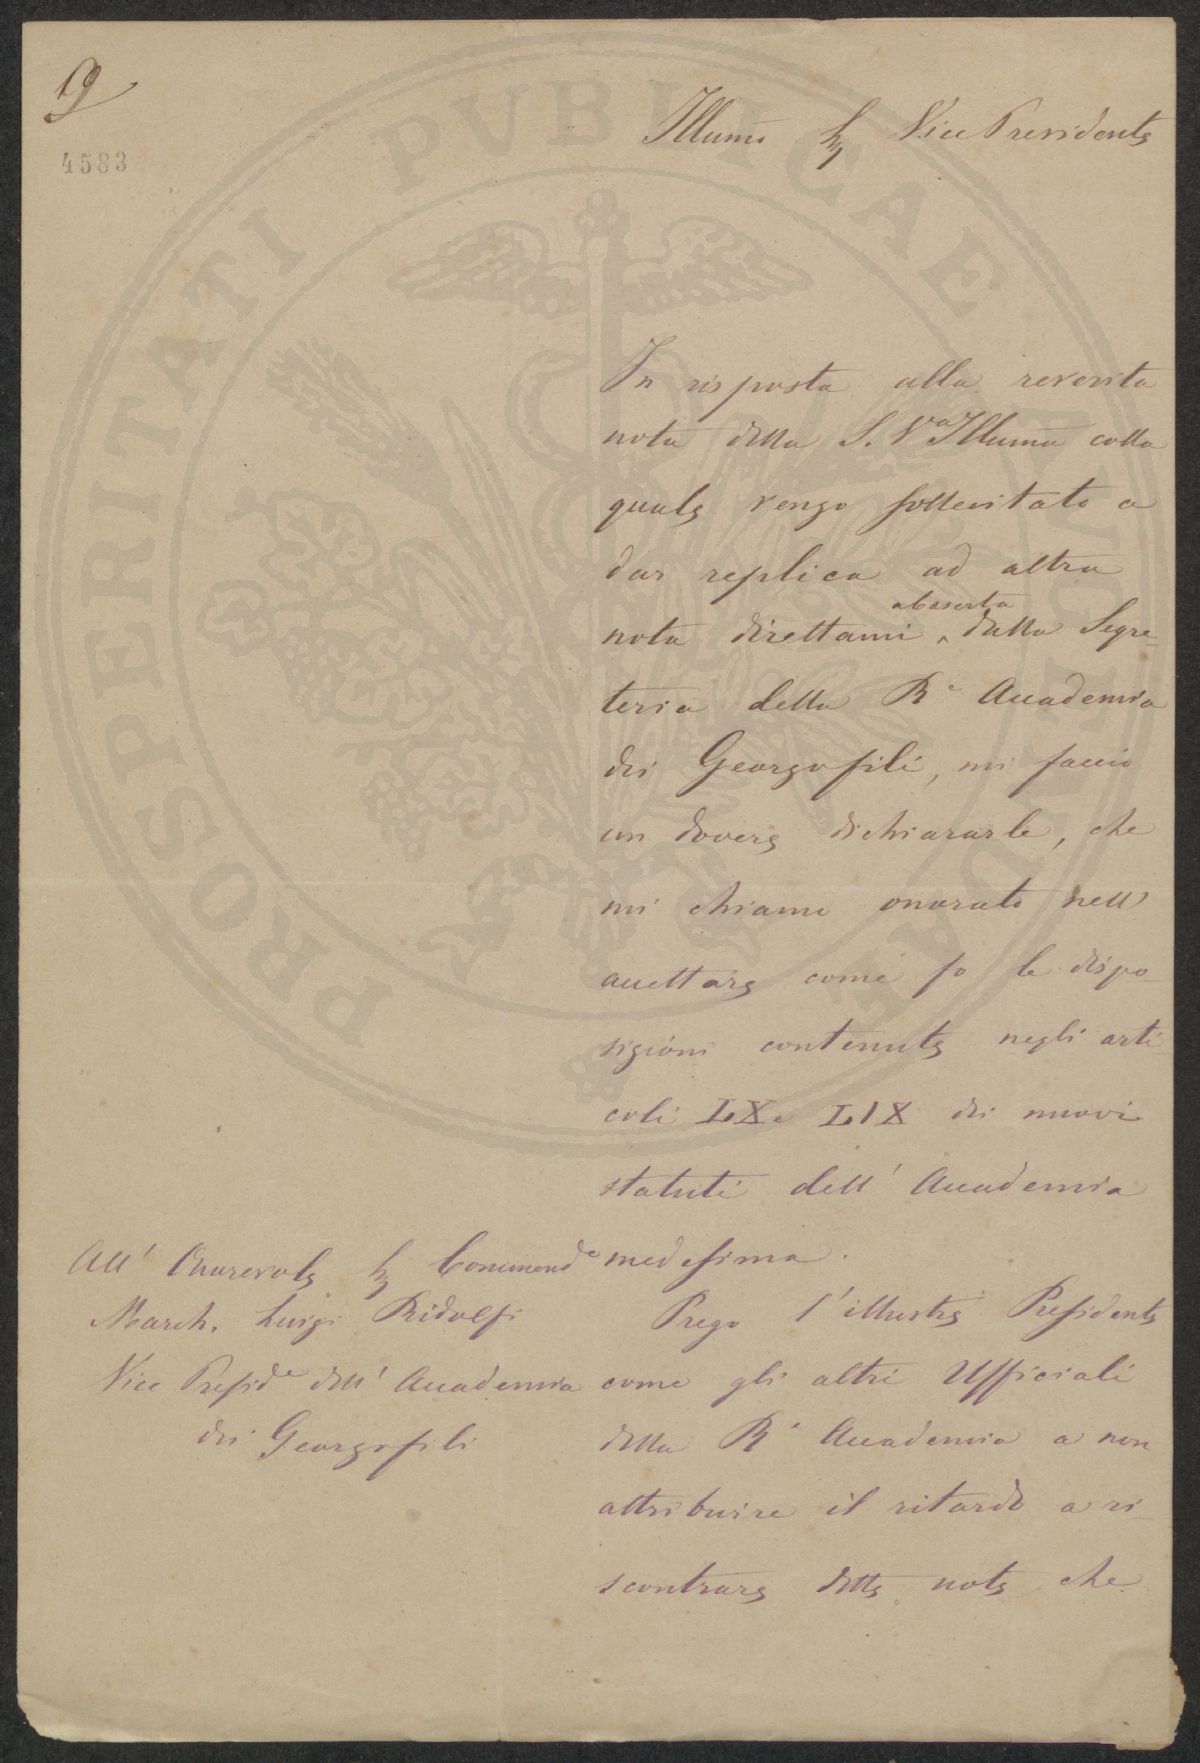 9
4583
Illumo Sig Vice Presidente
In risposta alla reverita
nota della S. Va Illuma colla
quale vengo sollecitato a
dar replica ad altra
nota direttami dalla Segre-
teria della Re Accademia
dei Georgofili, mi faccio
un dovere dichiararle, che
mi chiamo onorato nell'
accettare come fo le dispo
sizioni contenute negli arti
coli LX e LIX dei nuovi
statuti dell' Accademia
medesima.
Prego l'illustre Presidente
come gli altri Ufficiali
della Re Accademia a non
attribuire il ritardo a ri-
scontrare dette note che
All' Onorevole Sig Commende
March. Luigi Ridolfi
Vice Preside dell' Accademia
dei Georgofili
PROSPERITATI PVBLICAE AVGENDAE